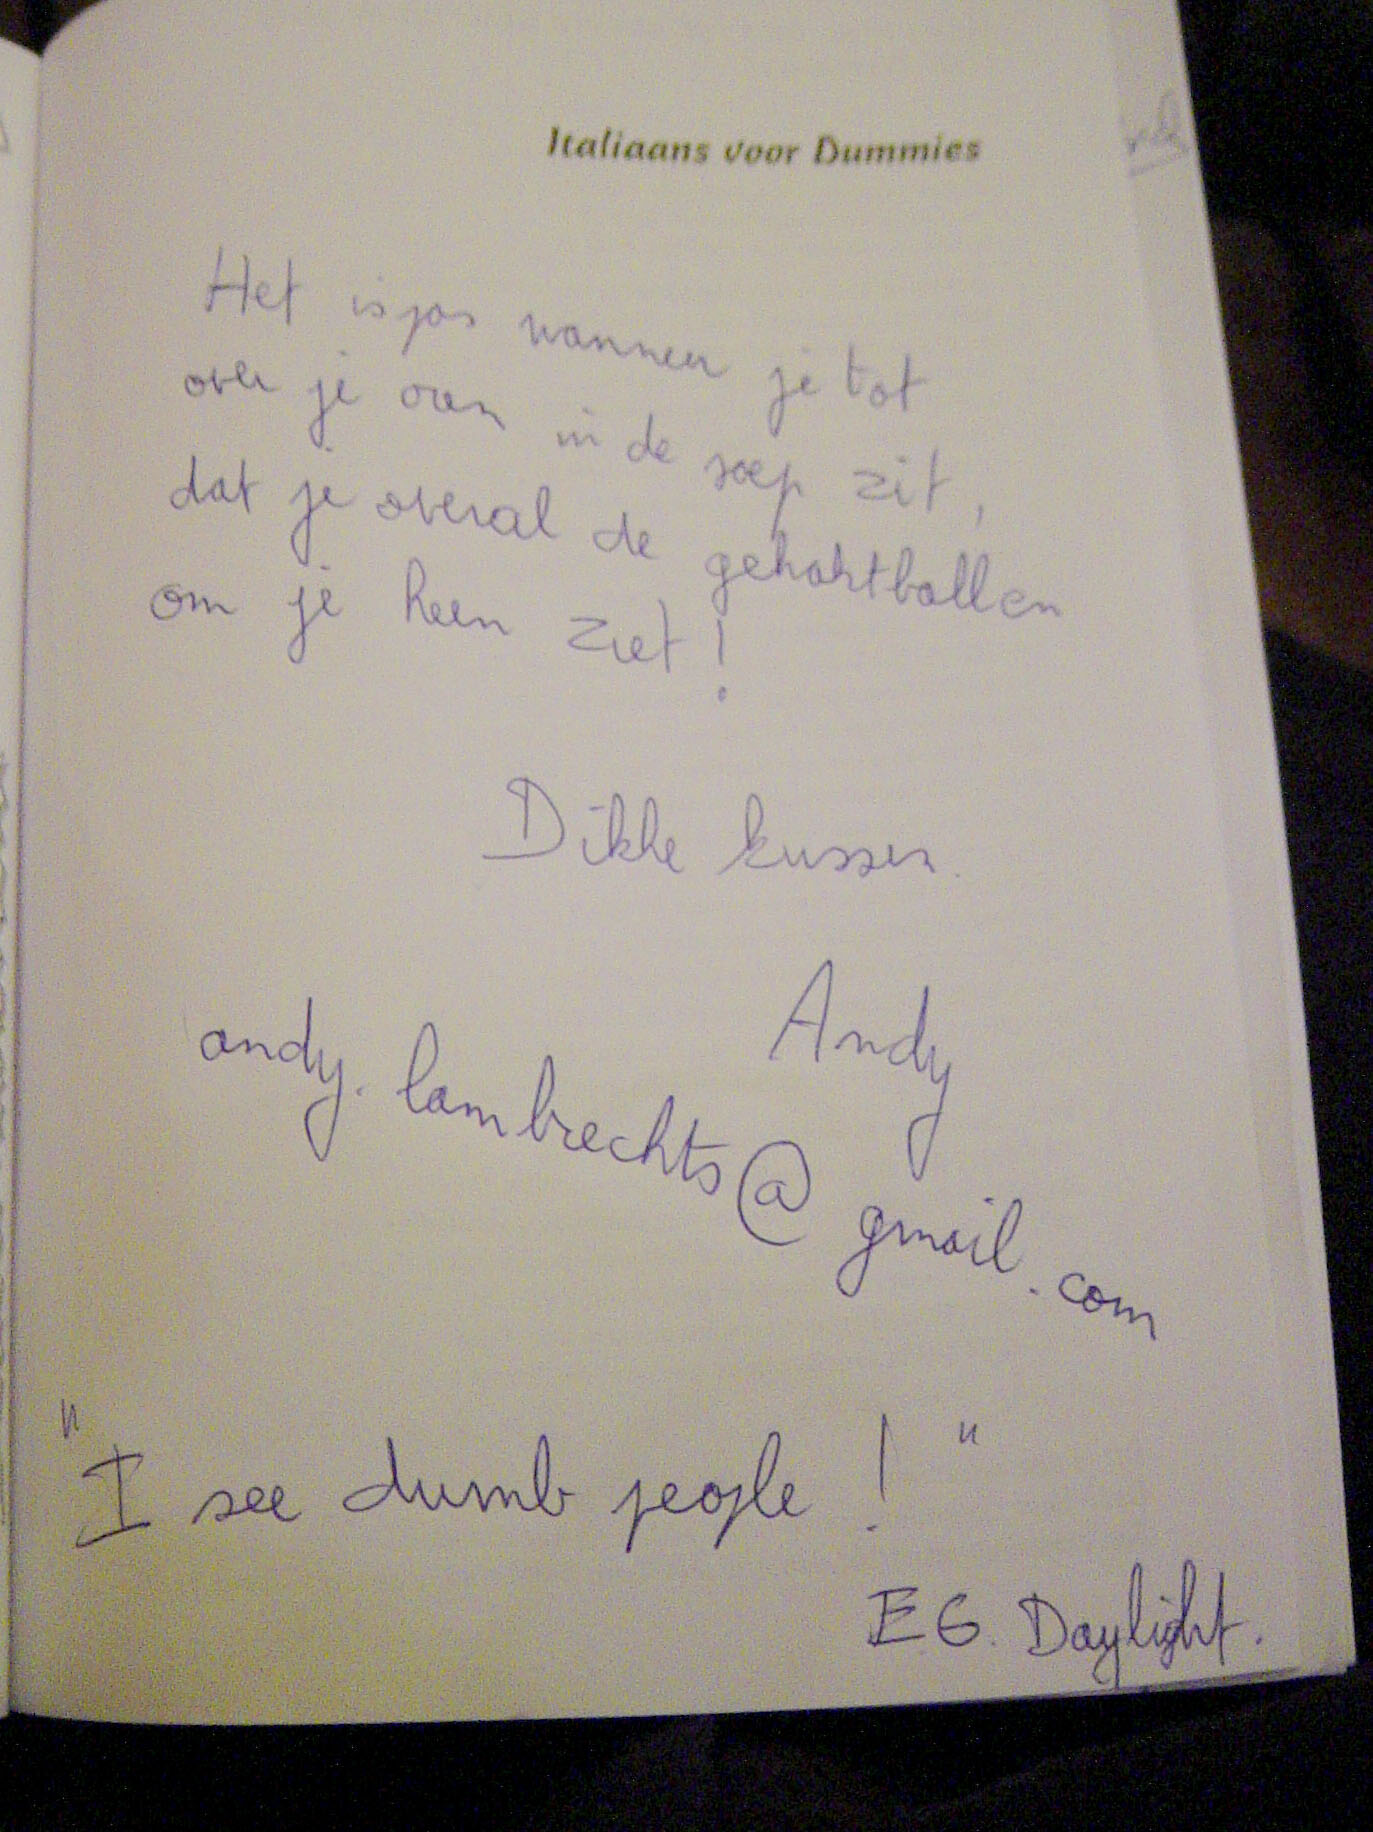 Italiaans voor Dummies
Het is pas wanneer je tot
over je oren in de soep zit,
dat je overal de gehaktballen
om je heen ziet!
Dikke kussen.
Andy
andy.lambrechts@gmail.com
"I see dumb people!"
EG. Daylight.